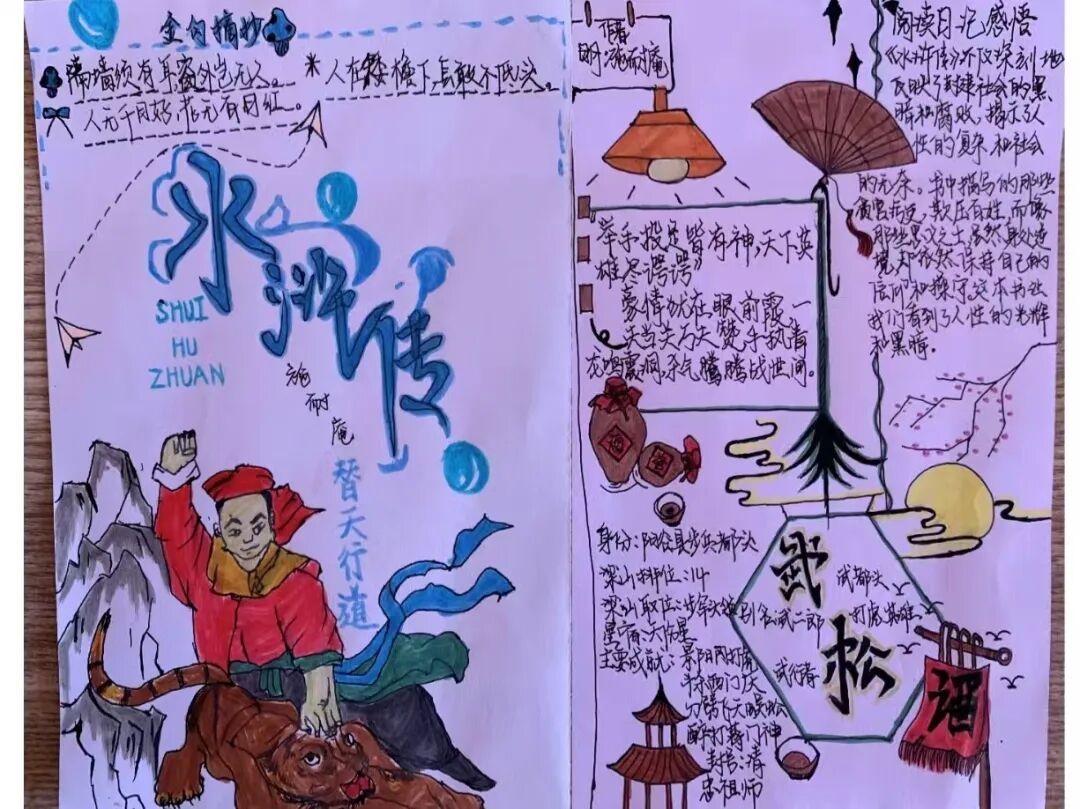 金句摘抄
隔墙须有耳窗外岂无人。
人无千日好,花无百日红。
人在矮檐下,怎敢不低头。
水浒传
SHUI
HU
ZHUAN
施耐庵
替天行道
作者
明·施耐庵
阅读日记感悟
《水浒传》不仅深刻地
反映了封建社会的黑
暗和腐败,揭示了人
性的复杂和社会
的无奈。书中描写的那些
贪官污吏,欺压百姓,而像
那些忠义之士虽然身处逆
境,却依然保持自己的
信仰和操守,这本书让
我们看到了人性的光辉
和黑暗.
举手投足皆有神,天下英
雄尽谔谔》
豪情犹在眼前霞一
夫当关万夫赞,手执青
花鸣震洞,杀气腾腾战世间。
酒
酒
身份:阳谷县步兵都头
梁山排位:14
梁山职位:步军头领
星宿:天伤星
主要成就:景阳冈打虎
斗杀西门庆
刀劈飞天蜈蚣
醉打蒋门神
封号:清
忠祖师
武松
武都头
别名武二郎
打虎英雄
武行者
酒